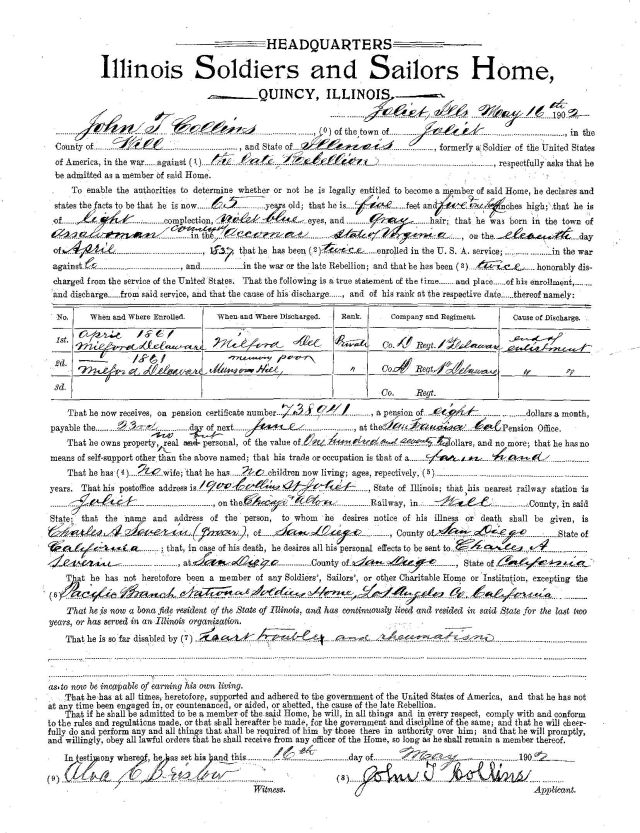 HEADQUARTERS
Illinois Soldiers and Sailors Home,
QUINCY, ILLINOIS,
Joliet, Ills May 16th 1902
John T Collins (0) of the town of Joliet, in the
County of Will, and State of Illinois, formerly a Soldier of the United States
of America, in the war against (1) the late Rebellion, respectfully asks that he
be admitted as a member of said Home.
To enable the authorities to determine whether or not he is legally entitled to become a member of said Home, he declares and
states the facts to be that he is now 65 years old; that he is five feet and five inches high; that he is
of light complection, violet blue eyes, and gray hair; that he was born in the town of
Assawoman in the county of Accomac State of Virginia, on the eleventh day
of April, 1837, that he has been (2) twice enrolled in the U. S. A. service; in the war
against and in the war or the late Rebellion; and that he has been (2) twice honorably dis-
charged from the service of the United States. That the following is a true statement of the time and place of his enrollment,
and discharge from said service, and that the cause of his discharge, and of his rank at the respective date thereof namely:
No. When and Where Enrolled. When and Where Discharged. Rank. Company and Regiment. Cause of Discharge.
1st. April 1861 Milford Delaware Milford Del Private Co. D Regt. 1st Delaware end of enlistment
2d. 1861 Milford Delaware memory poor Munsons Hill, " Co. Regt. 1st Delaware " "
3d. Co. Regt.
That he now receives, on pension certificate number 738941, a pension of eight dollars a month,
payable the 23rd day of next June, at the San Francisco Cal Pension Office.
That he owns property, no real but personal, of the value of One hundred and seventy dollars, and no more; that he has no
means of self-support other than the above named; that his trade or occupation is that of a farm hand
That he has (4) No wife; that he has No children now living; ages, repectively, (5)
years. That his postoffice address is 1900 Collins St Joliet, State of Illinois; that his nearest railway station is
Joliet, on the Chicago Alton Railway, in Will County, in said
State; that the name and address of the person, to whom he desires notice of his illness or death shall be given, is
Charles A Severin (Grocer), of San Diego, County of San Diego State of
California; that, in case of death, he desires all his personal effects to be sent to Charles A
Severin, at San Diego County of San Diego, State of California
That he has not heretofore been a member of any Soldiers', Sailors', or other Charitable Home or Institution, excepting the
(6) Pacific Branch National Soldiers Home, Los Angeles Co. California
That he is now a bona fide resident of the State of Illinois, and has continuously lived and resided in said State for the last two
years, or has served in an Illinois organization.
That he is so far disabled by (7) heart trouble, and rheumatism
as to now be incapable of earning his own living.
That he has at all times, heretofore, supported and adhered to the government of the United States of America, and that he has not
at any time been engaged in, or countenanced, or aided, or abetted, the cause of the late Rebellion.
That if he shall be admitted to be a member of the said Home, he will, in all things and in every respect, comply with and conform
to the rules and regulations made, or that shall hereafter be made, for the government and discipline of the same; and that he will cheer-
fully do and perform any and all things that shall be required of him by those there in authority over him; and that he will promptly,
and willingly, obey all lawful orders that he shall receive from any officer of the Home, so long as he shall remain a member thereof.
In testimony whereof, he has set his hand this 16th day of May 1902
(9) Alva C Bristow (8) John T Collins
Witness. Applicant.